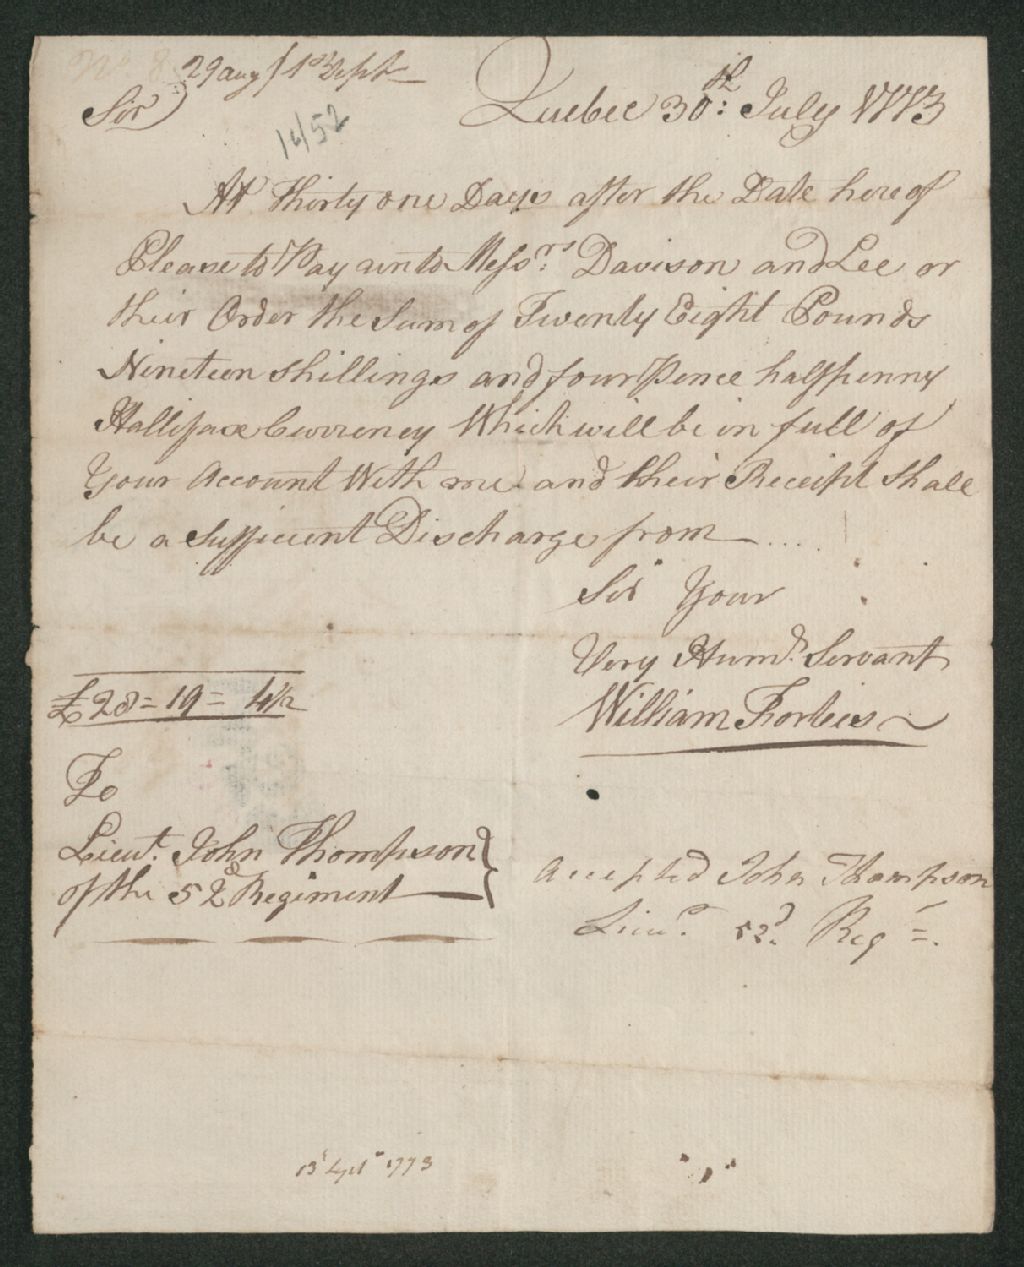 No 8 29 aug / 1st Sept
Sir
Quebec 30th: July 1773
16/52
At Thirty one Days after the Date hereof
Please to Pay unto Messrs: Davison and Lee or
their Order the Sum of Twenty Eight Pounds
Nineteen shillings and four Pence halfpenny
Hallifax Currency Which will be in full of
Your Account With me and their Receipt Shall
be a sufficient Discharge from ....
Sir Your
Very Humd. Servant
William Forbes
£28=19=4½
To
Lieut. John Thompson
of the 52d Regiment
Accepted John Thompson
Lieu. 52d. Reg
13 Sept 1773